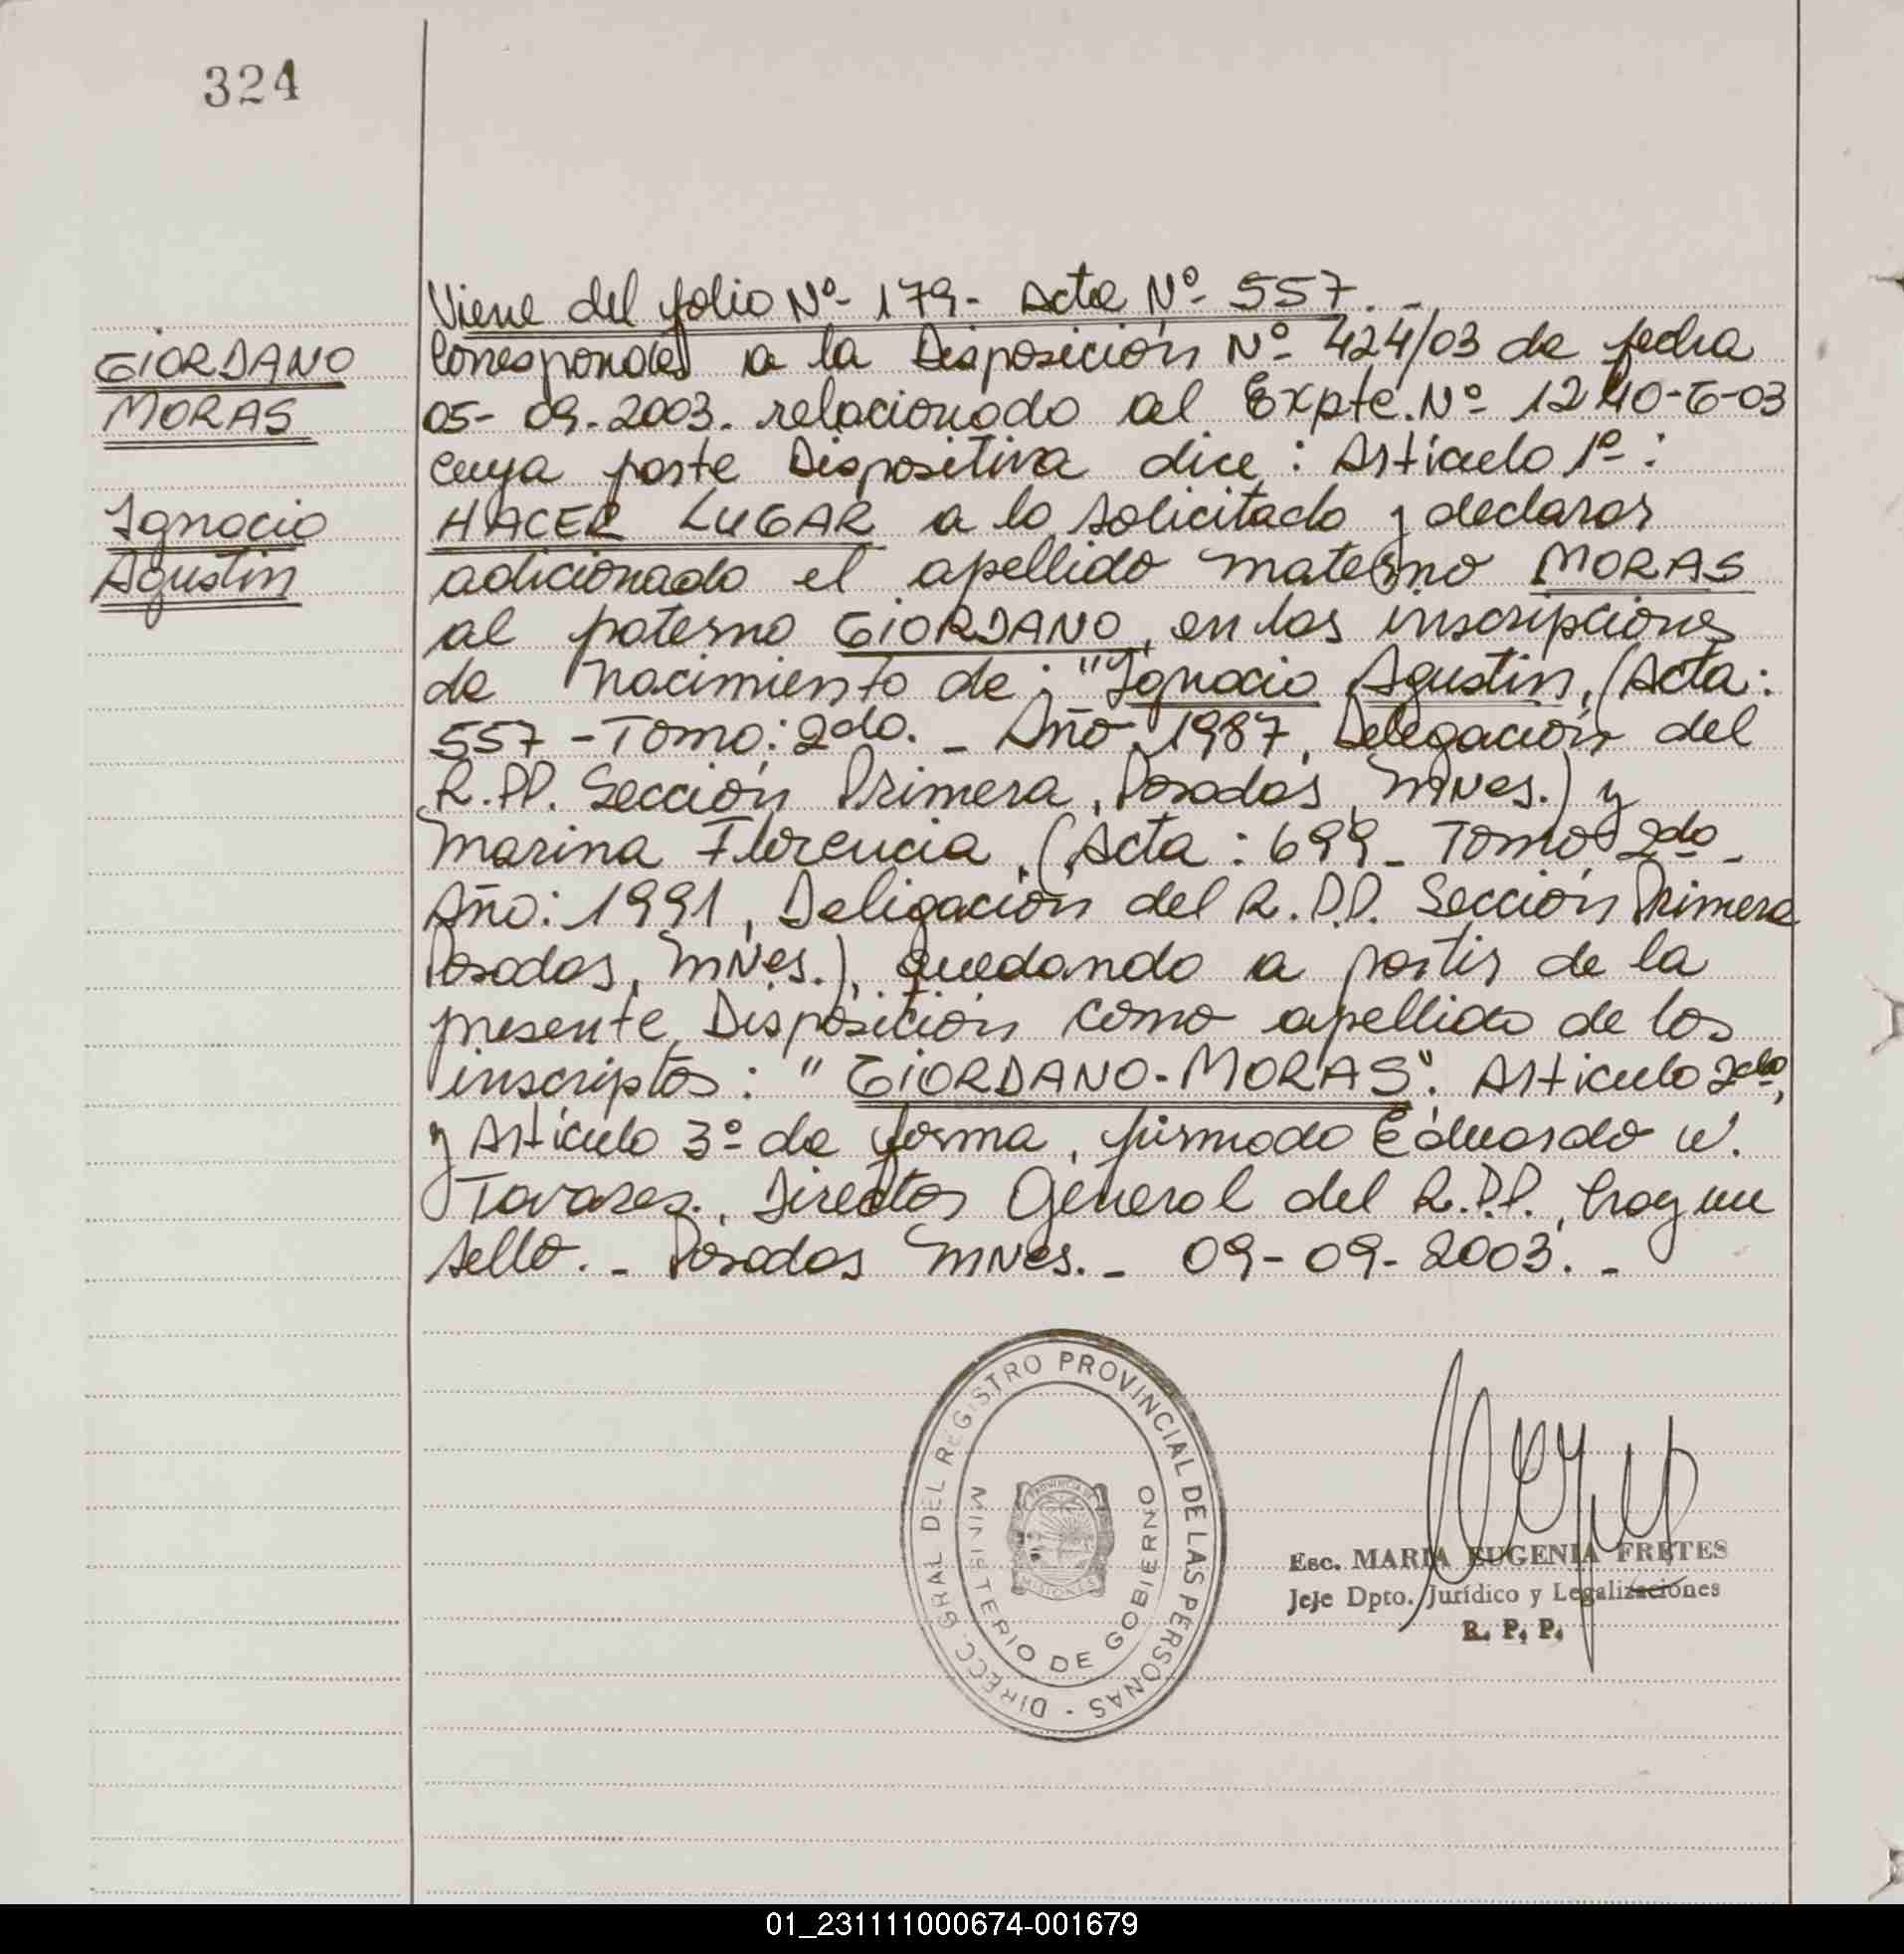 324
GIORDANO
MORAS
Ignacio
Agustin
Viene del folio Nº 179- Acta Nº 557.-
Corresponde a la Disposición Nº 424/03 de fecha
05-09-2003. relacionado al Expte. Nº 1240-G-03
cuya parte Dispositiva dice: Artículo 1º:
HACER LUGAR a lo solicitado y declarar
adicionado el apellido materno MORAS
al paterno GIORDANO, en las inscripciones
de nacimiento de: "Ignacio Agustin, (Acta:
557 - Tomo: 2do. - Año 1987, Delegación del
R.P.P. Sección Primera, Posadas, MNes.) y
Marina Florencia, (Acta: 699 - Tomo 2do -
Año: 1991, Deligación del R.P.P. Sección Primera
Posadas, MNes.), quedando a partir de la
presente Disposición como apellido de los
inscriptos: "GIORDANO-MORAS". Articulo 2do,
y Artículo 3º de forma, firmado Eduardo W.
Tavares., Director General del R.P.P., hay un
sello. - Posadas MNes. - 09-09-2003. -
DIRECC GRAL DEL REGISTRO PROVINCIAL DE LAS PERSONAS -
MINISTERIO DE GOBIERNO
PROVINCIA DE
MISIONES
Esc. MARIA EUGENIA FRETES
Jefe Dpto. Jurídico y Legalizaciones
R. P. P.
01_231111000674-001679